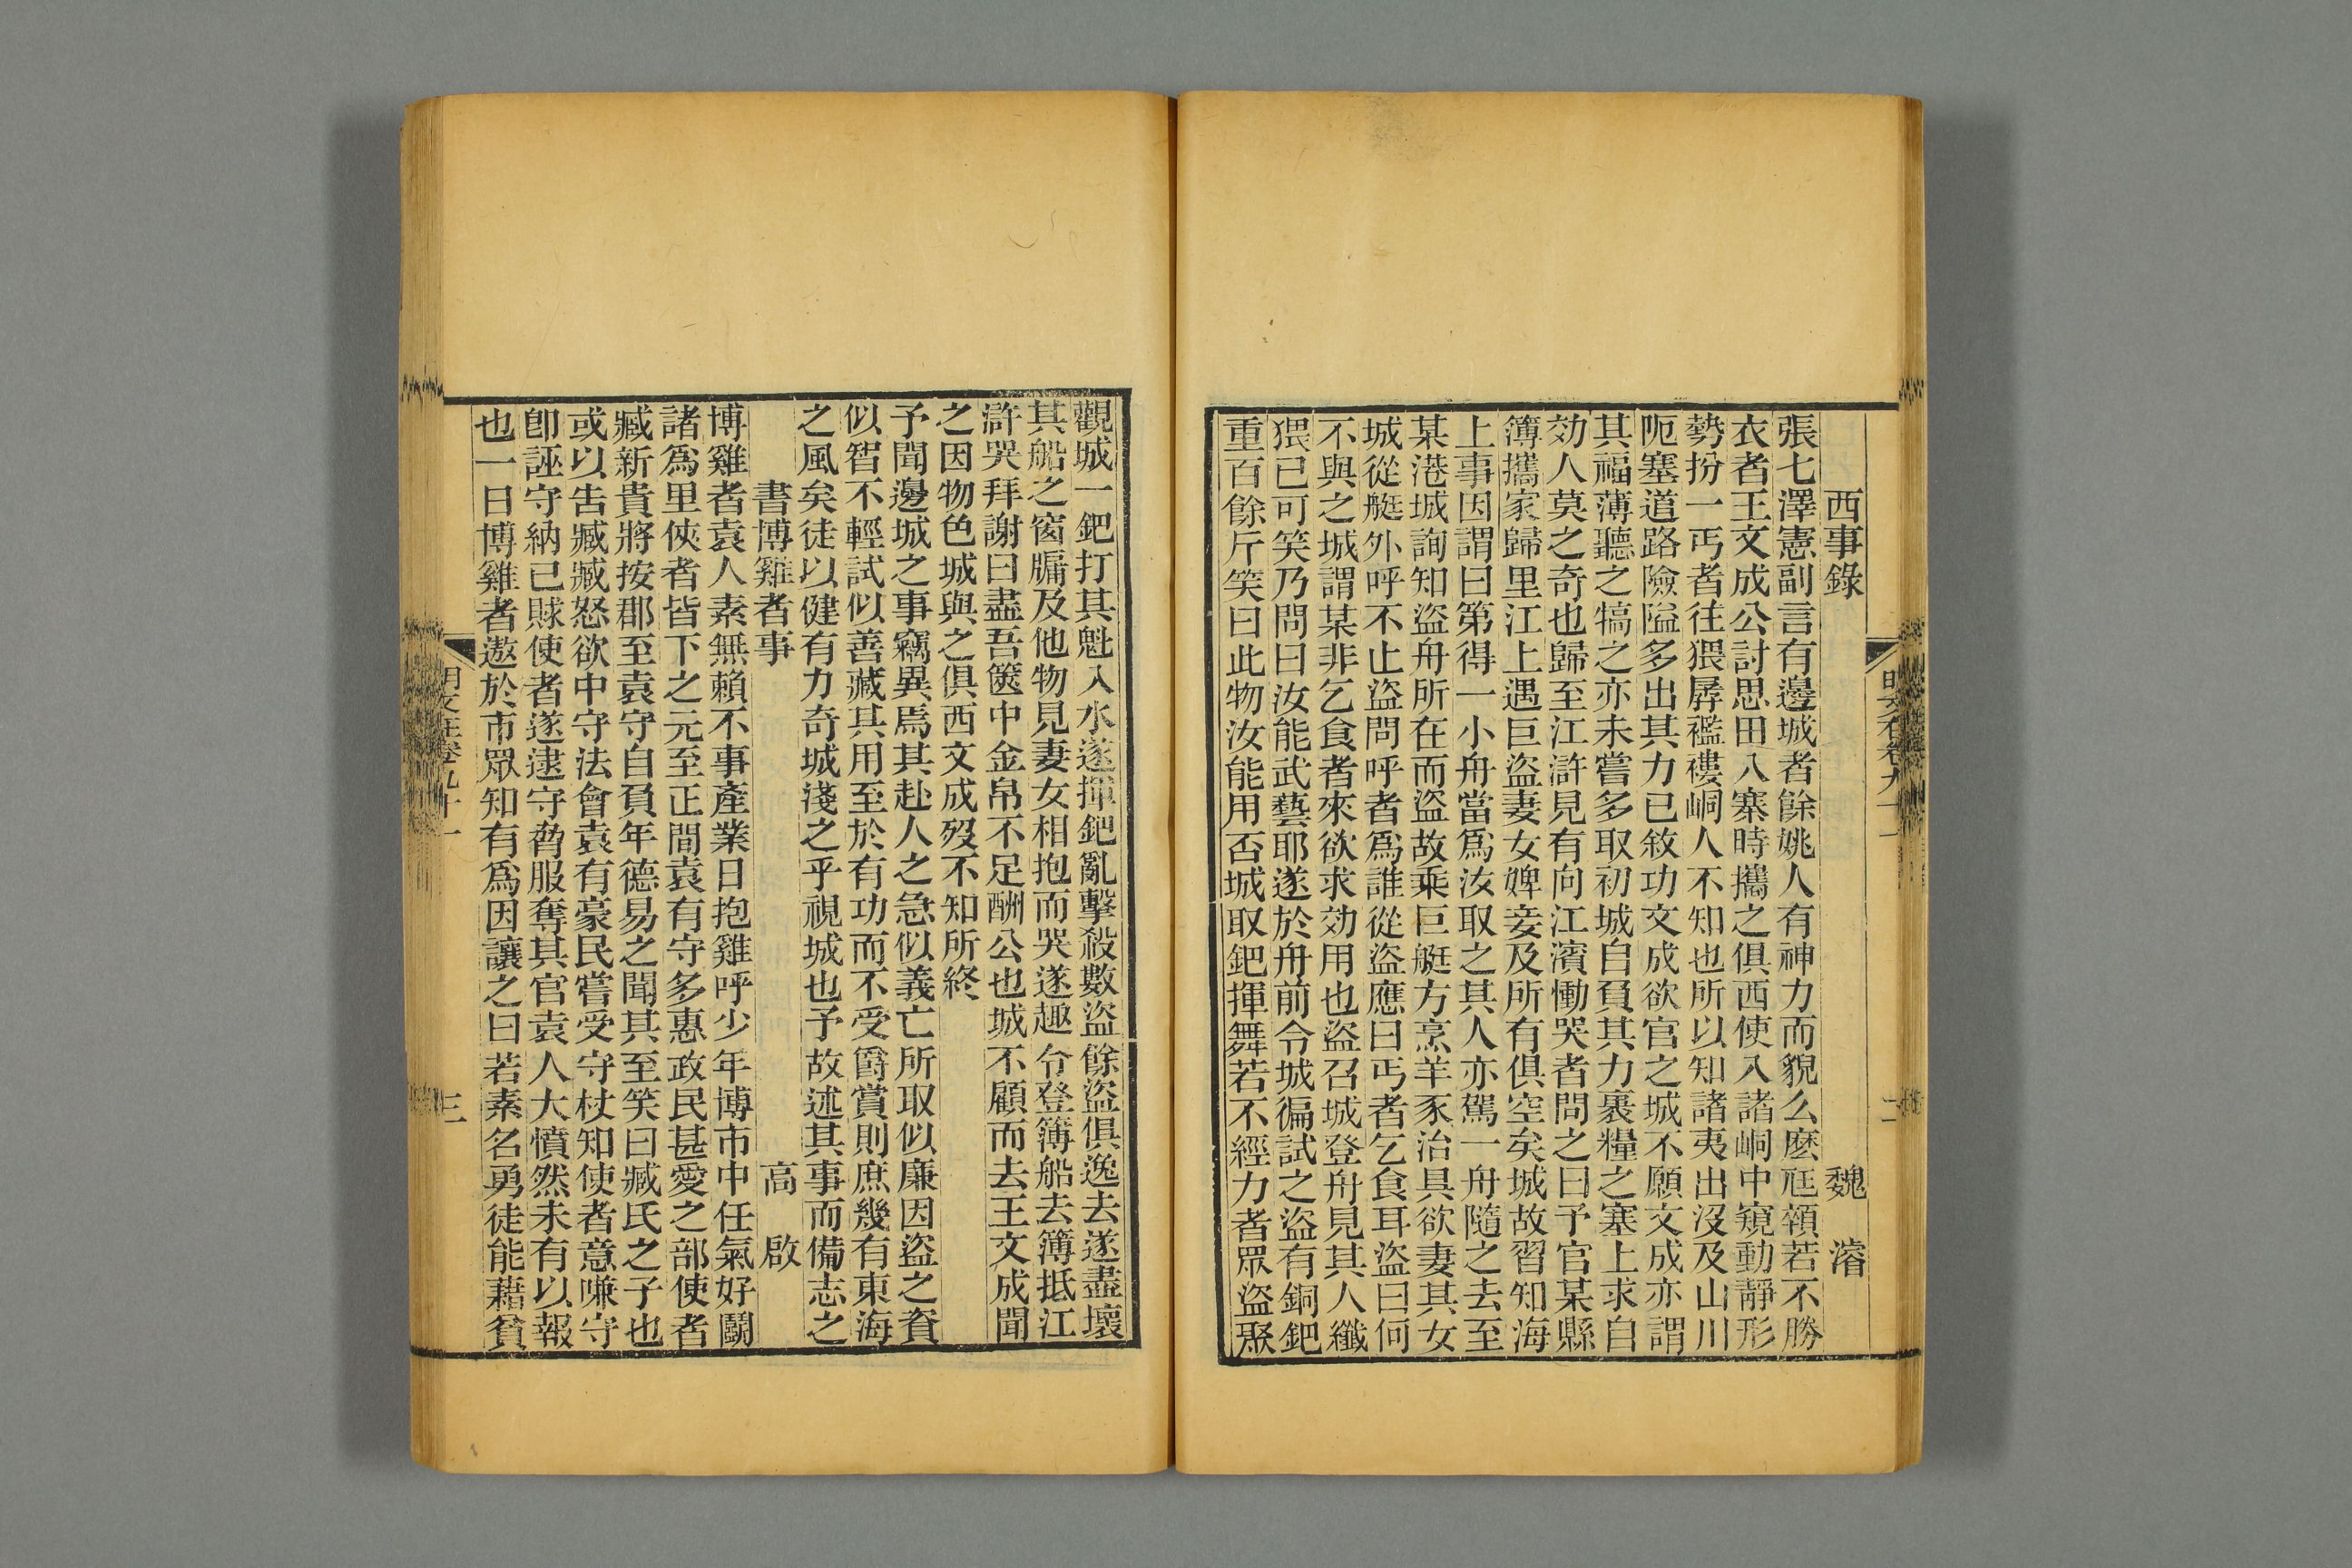 西事錄　魏　濬
張七澤憲副言有邊城者餘姚人有神力而貌么麽尫顇若不勝
衣者王文成公討思田八寨時攜之俱西使入諸峒中窺動靜形
勢扮一丐者往猥孱襤褸峒人不知也所以知諸夷出沒及山川
阨塞道路險隘多出其力已敘功文成欲官之城不願文成亦謂
其福薄聽之犒之亦未嘗多取初城自負其力裹糧之塞上求自
効人莫之奇也歸至江滸見有向江濱慟哭者問之曰予官某縣
簿攜家歸里江上遇巨盜妻女婢妾及所有俱空矣城故習知海
上事因謂曰第得一小舟當爲汝取之其人亦駕一舟隨之去至
某港城詢知盜舟所在而盜故乘巨艇方烹羊豕治具欲妻其女
城從艇外呼不止盜問呼者爲誰從盜應曰丐者乞食耳盜曰何
不與之城謂某非乞食者來欲求効用也盜召城登舟見其人纖
猥已可笑乃問曰汝能武藝耶遂於舟前令城徧試之盜有銅鈀
重百餘斤笑曰此物汝能用否城取鈀揮舞若不經力者眾盜聚
二
觀城一鈀打其魁入水遂揮鈀亂擊殺數盜餘盜俱逸去遂盡壞
其船之窗牖及他物見妻女相抱而哭遂趣令登簿船去簿抵江
滸哭拜謝曰盡吾篋中金帛不足酬公也城不顧而去王文成聞
之因物色城與之俱西文成歿不知所終
予聞邊城之事竊異焉其赴人之急似義亡所取似廉因盜之資
似智不輕試似善藏其用至於有功而不受爵賞則庶幾有東海
之風矣徒以健有力奇城淺之乎視城也予故述其事而備志之
書博雞者事　高　啟
博雞者袁人素無賴不事產業日抱雞呼少年博市中任氣好鬭
諸爲里俠者皆下之元至正間袁有守多惠政民甚愛之部使者
臧新貴將按郡至袁守自負年德易之聞其至笑曰臧氏之子也
或以告臧臧怒欲中守法會袁有豪民嘗受守杖知使者意嗛守
卽誣守納已賕使者遂逮守脅服奪其官袁人大憤然未有以報
也一日博雞者遨於市眾知有爲因讓之曰若素名勇徒能藉貧
三